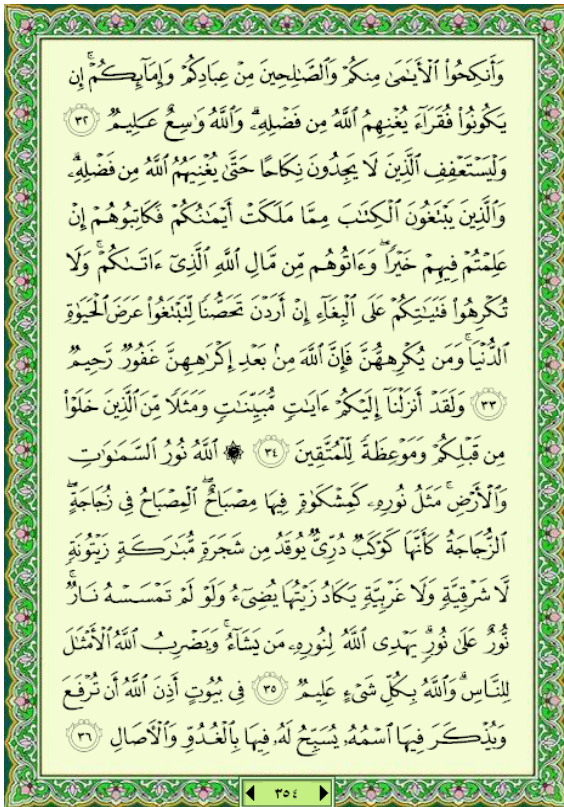 وَأَنكِحُوا۟ ٱلْأَيَـٰمَىٰ مِنكُمْ وَٱلصَّـٰلِحِينَ مِنْ عِبَادِكُمْ وَإِمَآئِكُمْ ۚ إِن
يَكُونُوا۟ فُقَرَآءَ يُغْنِهِمُ ٱللَّهُ مِن فَضْلِهِۦ ۗ وَٱللَّهُ وَٰسِعٌ عَلِيمٌ ٣٢
وَلْيَسْتَعْفِفِ ٱلَّذِينَ لَا يَجِدُونَ نِكَاحًا حَتَّىٰ يُغْنِيَهُمُ ٱللَّهُ مِن فَضْلِهِۦ ۗ
وَٱلَّذِينَ يَبْتَغُونَ ٱلْكِتَـٰبَ مِمَّا مَلَكَتْ أَيْمَـٰنُكُمْ فَكَاتِبُوهُمْ إِنْ
عَلِمْتُمْ فِيهِمْ خَيْرًا ۖ وَءَاتُوهُم مِّن مَّالِ ٱللَّهِ ٱلَّذِىٓ ءَاتَىٰكُمْ ۚ وَلَا
تُكْرِهُوا۟ فَتَيَـٰتِكُمْ عَلَى ٱلْبِغَآءِ إِنْ أَرَدْنَ تَحَصُّنًا لِّتَبْتَغُوا۟ عَرَضَ ٱلْحَيَوٰةِ
ٱلدُّنْيَا ۚ وَمَن يُكْرِههُّنَّ فَإِنَّ ٱللَّهَ مِنۢ بَعْدِ إِكْرَٰهِهِنَّ غَفُورٌ رَّحِيمٌ
٣٣ وَلَقَدْ أَنزَلْنَآ إِلَيْكُمْ ءَايَـٰتٍ مُّبَيِّنَـٰتٍ وَمَثَلًا مِّنَ ٱلَّذِينَ خَلَوْا۟
مِن قَبْلِكُمْ وَمَوْعِظَةً لِّلْمُتَّقِينَ ٣٤ ۞ ٱللَّهُ نُورُ ٱلسَّمَـٰوَٰتِ
وَٱلْأَرْضِ ۚ مَثَلُ نُورِهِۦ كَمِشْكَوٰةٍ فِيهَا مِصْبَاحٌ ۖ ٱلْمِصْبَاحُ فِى زُجَاجَةٍ ۖ
ٱلزُّجَاجَةُ كَأَنَّهَا كَوْكَبٌ دُرِّىٌّ يُوقَدُ مِن شَجَرَةٍ مُّبَـٰرَكَةٍ زَيْتُونَةٍ
لَّا شَرْقِيَّةٍ وَلَا غَرْبِيَّةٍ يَكَادُ زَيْتُهَا يُضِىٓءُ وَلَوْ لَمْ تَمْسَسْهُ نَارٌ ۚ
نُّورٌ عَلَىٰ نُورٍ ۗ يَهْدِى ٱللَّهُ لِنُورِهِۦ مَن يَشَآءُ ۚ وَيَضْرِبُ ٱللَّهُ ٱلْأَمْثَـٰلَ
لِلنَّاسِ ۗ وَٱللَّهُ بِكُلِّ شَىْءٍ عَلِيمٌ ٣٥ فِى بُيُوتٍ أَذِنَ ٱللَّهُ أَن تُرْفَعَ
وَيُذْكَرَ فِيهَا ٱسْمُهُۥ يُسَبِّحُ لَهُۥ فِيهَا بِٱلْغُدُوِّ وَٱلْـَٔاصَالِ ٣٦
٣٥٤